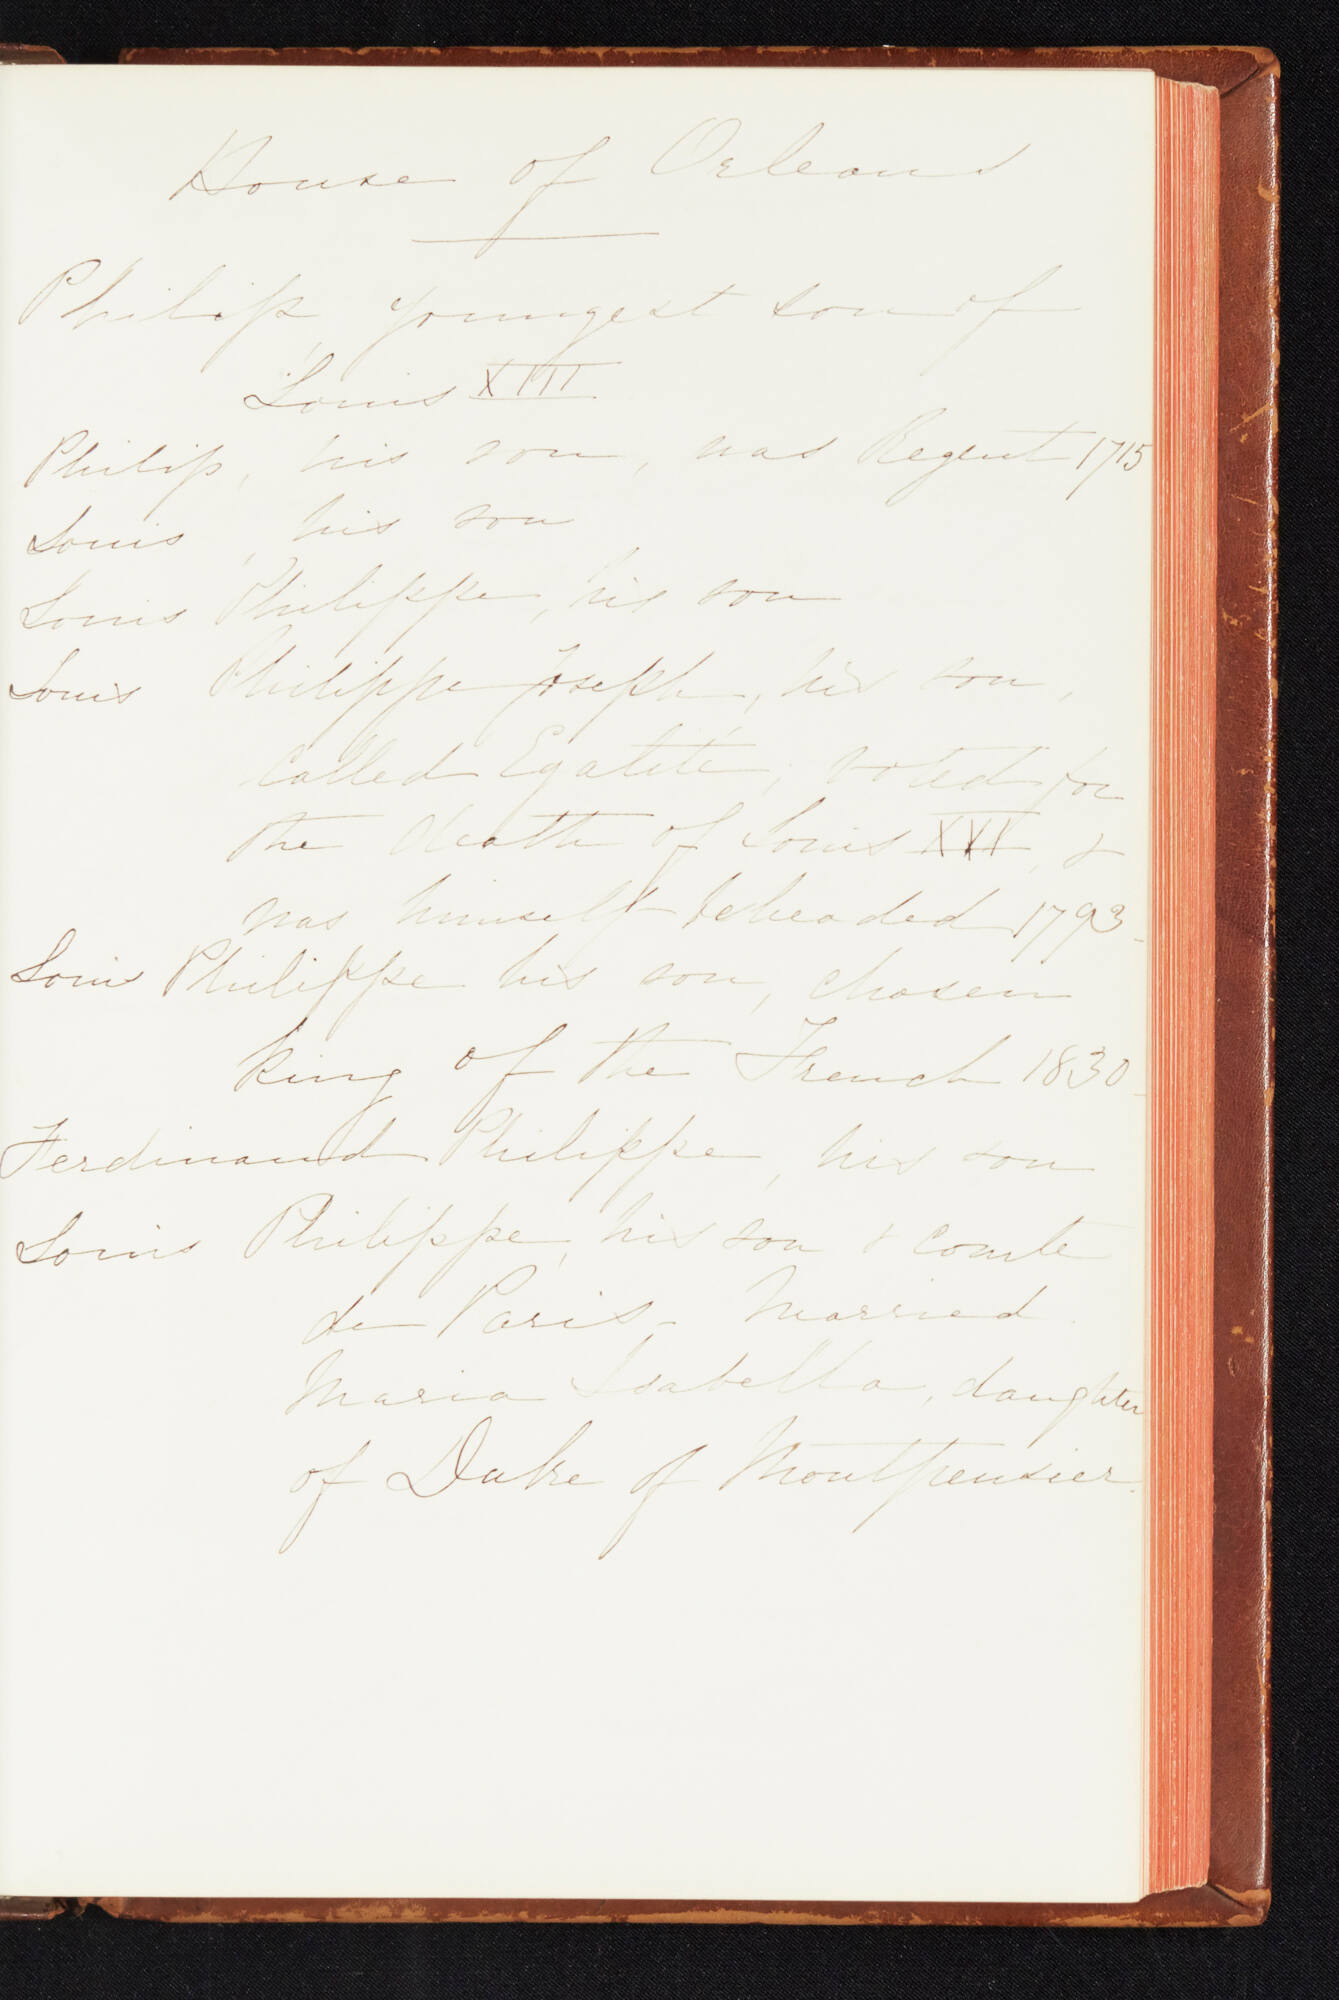 House of Orleans
Philip, youngest son of
Louis XIII
Philip, his son, was Regent 1715
Louis, his son
Louis Philippe, his son
Louis Philippe Joseph, his son,
called Egalité, voted for
the death of Louis XVI, &
was himself beheaded 1793-
Louis Philippe his son, chosen
king of the French 1830-
Ferdinand Philippe, his son
Louis Philippe, his son & comte
de Paris- Married
Maria Isabella, daughter
of Duke of Montpensier.